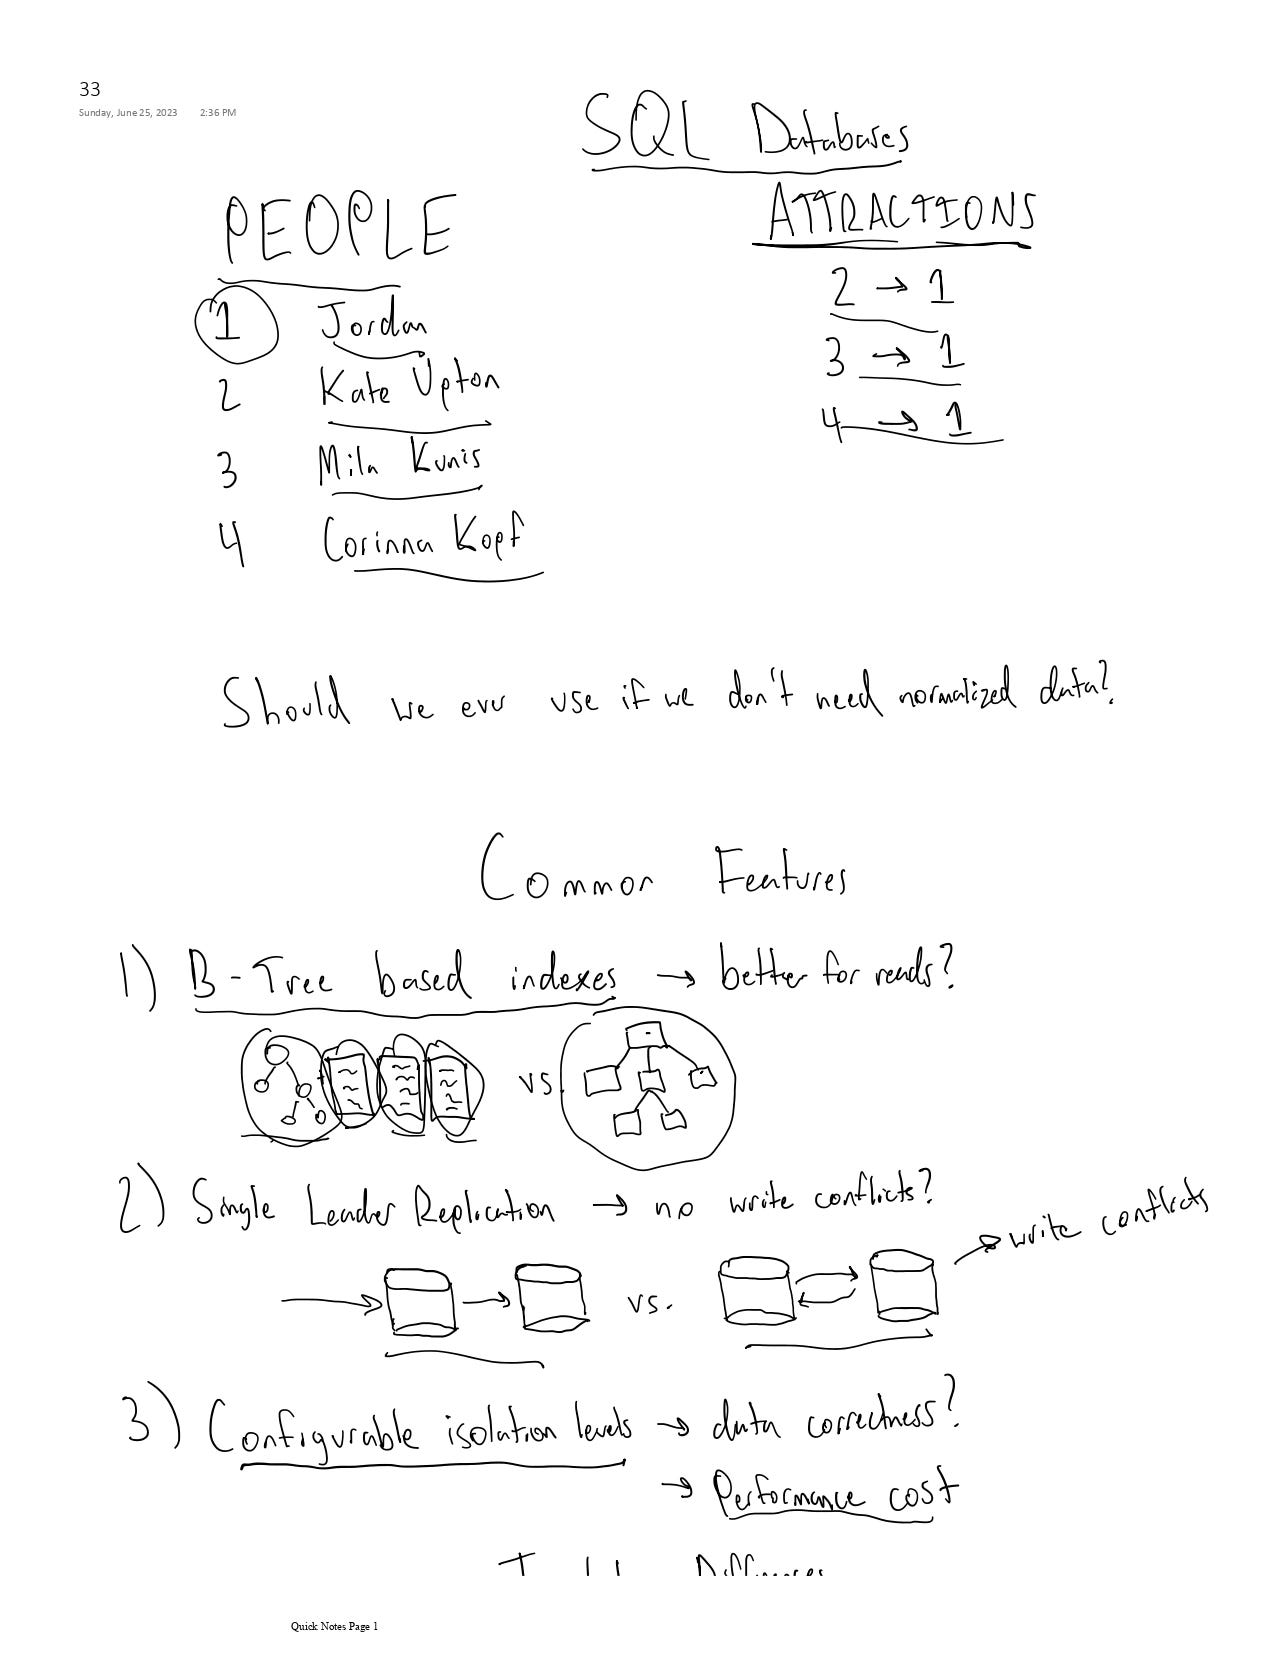 33
Sunday, June 25, 2023 2:36 PM
SQL Databases
PEOPLE
1 Jordan
2 Kate Upton
3 Mila Kunis
4 Corinna Kopf
ATTRACTIONS
2 → 1
3 → 1
4 → 1
Should we ever use if we don't need normalized data?
Common Features
1) B-Tree based indexes → better for reads?
vs.
2) Single Leader Replication → no write conflicts?
→ write conflicts
vs.
3) Configurable isolation levels → data correctness?
→ Performance cost
Differences
Quick Notes Page 1